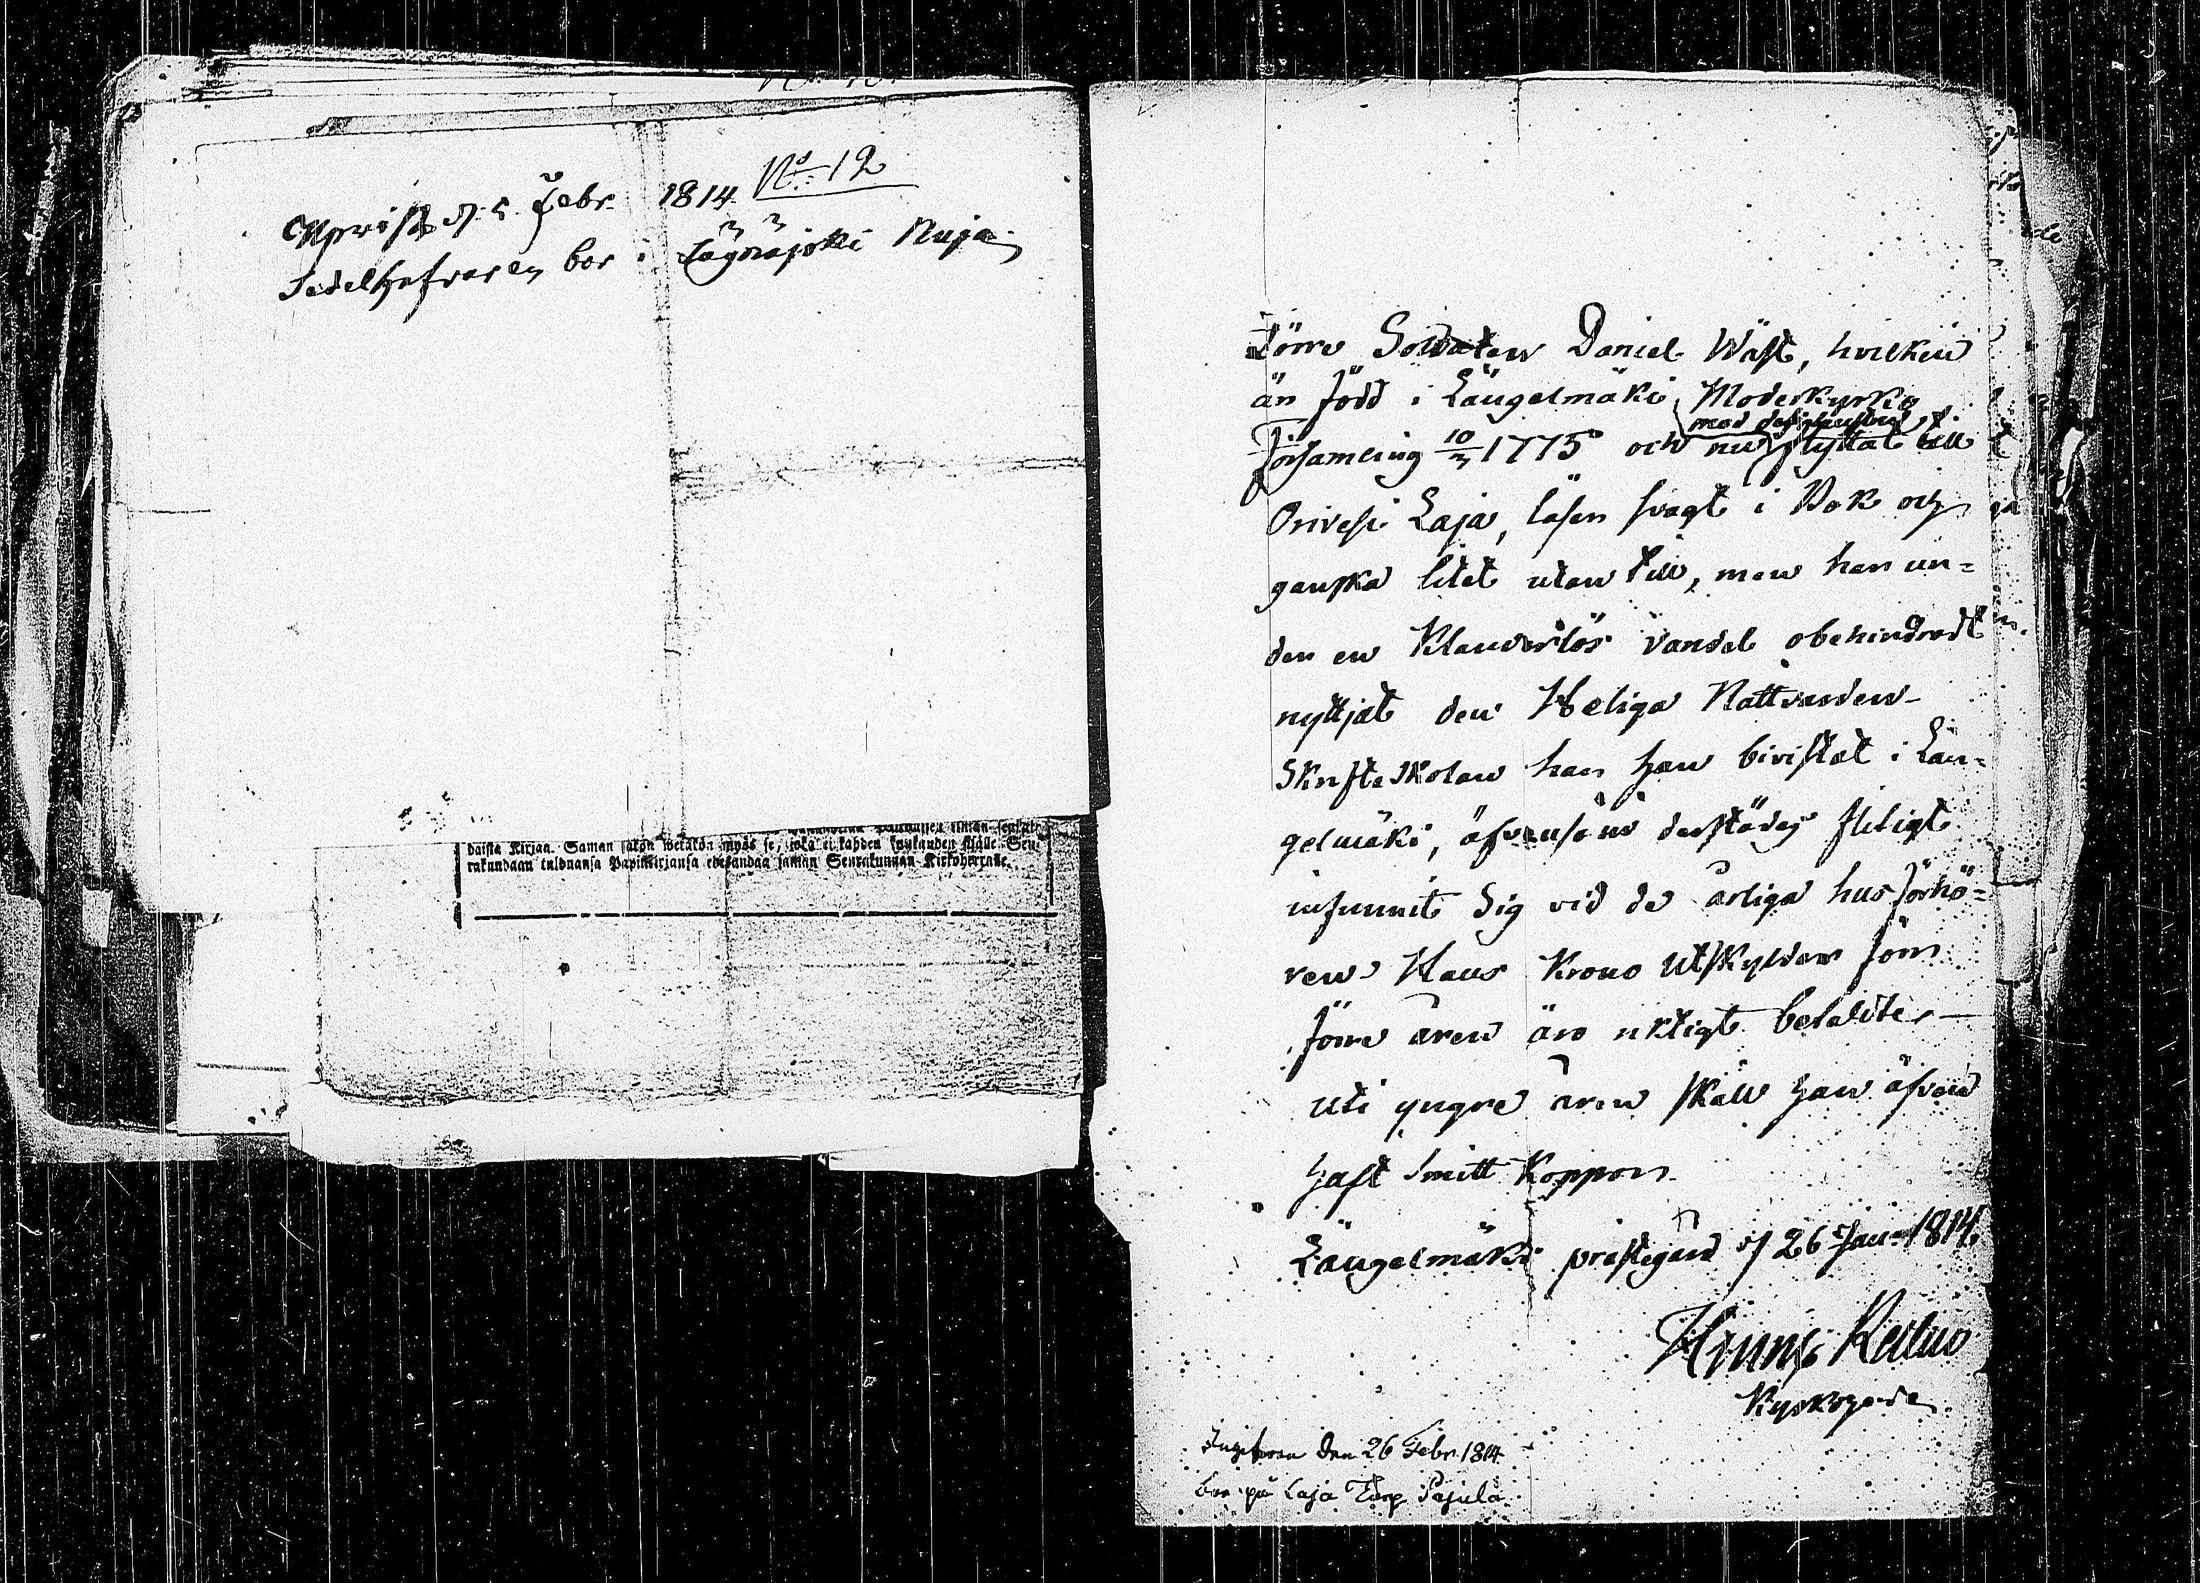 No 12
Uprist d. 5 Febr. 1814
Sedelhafvaren bor i Ruja
daista Kirjaa. Saman
rakundaan tulduansa Papinkirjansa edesandaa saman Seurakunnan Kirkoherralle.
Förre Soldaten Daniel Wäst, hvilken
är född i Längelmäki Moderkyrko
med dess hustru
Församling 10/3 1775 och nu flyttat till
Orivesi Laja, läser svagt i Bok och
ganska litet utan till, men har un=
der en klanderlös vandel obehindradt
nyttjat den Heliga Nattvarden
Skriftskolan har han bivistat i Län=
gelmäki, äfvensom derstädes flitigt
infunnit Sig vid de årliga husförhö=
ren. Hans Krono utskylder för
förre åren äro riktigt betaldte.
Uti yngre åren skall han äfven
haft Smitt Koppor.
Längelmäki prästegård d 26 Jan. 1814
Kyrkoherde
Ingifven den 26 Febr. 1814
bor på Laja Torp Pajula